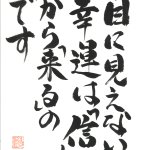 目に見えない
幸運は「信
から「来る」の
です